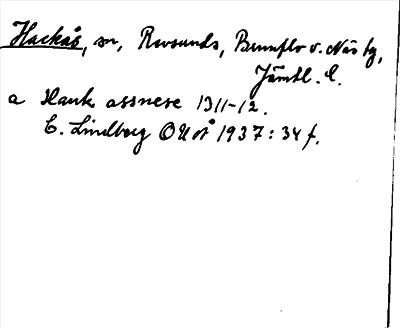 Hackås, sn, Revsunds, Brunflo o. Näs tg,
Jämtl. l.
a Hauk assnese 1311-12.
C. Lindberg OUÅ 1937: 34 f.